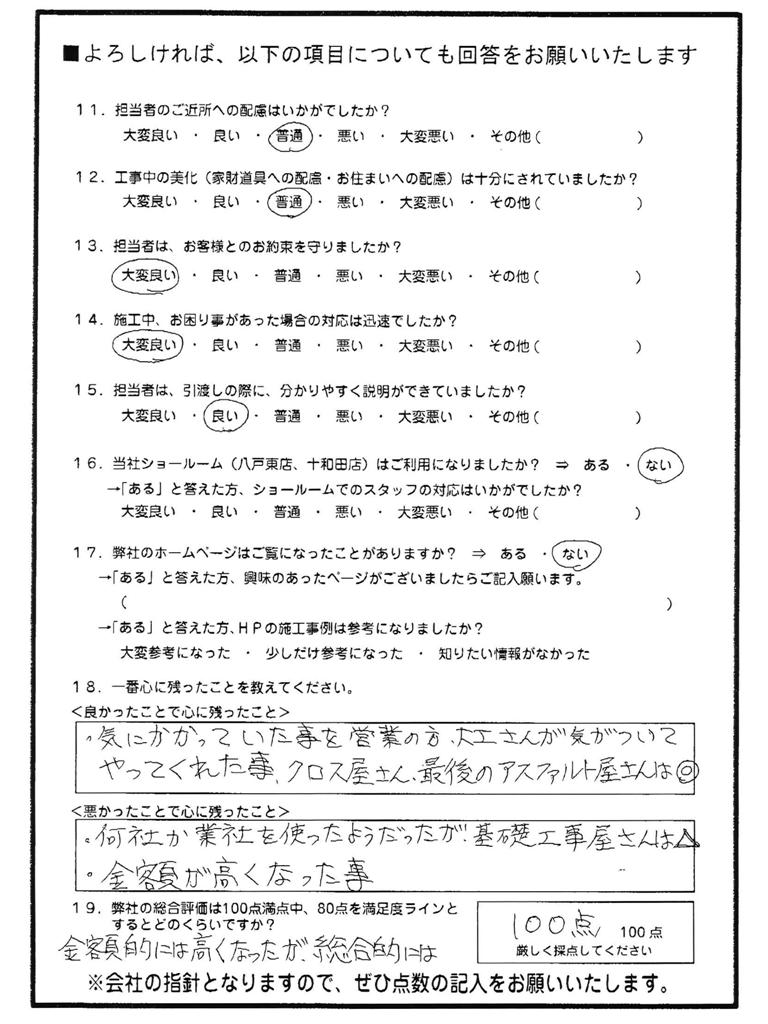 ■よろしければ、以下の項目についても回答をお願いいたします
11．担当者のご近所への配慮はいかがでしたか？
大変良い ・ 良い ・ 普通 ・ 悪い ・ 大変悪い ・ その他（　　　　　　）
12．工事中の美化（家財道具への配慮・お住まいへの配慮）は十分にされていましたか？
大変良い ・ 良い ・ 普通 ・ 悪い ・ 大変悪い ・ その他（　　　　　　）
13．担当者は、お客様とのお約束を守りましたか？
大変良い ・ 良い ・ 普通 ・ 悪い ・ 大変悪い ・ その他（　　　　　　）
14．施工中、お困り事があった場合の対応は迅速でしたか？
大変良い ・ 良い ・ 普通 ・ 悪い ・ 大変悪い ・ その他（　　　　　　）
15．担当者は、引渡しの際に、分かりやすく説明ができていましたか？
大変良い ・ 良い ・ 普通 ・ 悪い ・ 大変悪い ・ その他（　　　　　　）
16．当社ショールーム（八戸東店、十和田店）はご利用になりましたか？ ⇒ ある ・ ない
→「ある」と答えた方、ショールームでのスタッフの対応はいかがでしたか？
大変良い ・ 良い ・ 普通 ・ 悪い ・ 大変悪い ・ その他（　　　　　　）
17．弊社のホームページはご覧になったことがありますか？ ⇒ ある ・ ない
→「ある」と答えた方、興味のあったページがございましたらご記入願います。
（　　　　　　　　　　　　　　　　　　　　　　　　　　　　　　）
→「ある」と答えた方、HPの施工事例は参考になりましたか？
大変参考になった ・ 少しだけ参考になった ・ 知りたい情報がなかった
18．一番心に残ったことを教えてください。
<良かったことで心に残ったこと>
・気にかかっていた事を営業の方、大工さんが気がついて
やってくれた事、クロス屋さん、最後のアスファルト屋さんは◎
<悪かったことで心に残ったこと>
・何社か業社を使ったようだったが基礎工事屋さんは△
・金額が高くなった事
19．弊社の総合評価は100点満点中、80点を満足度ラインと
するとどのくらいですか？
金額的には高くなったが、総合的には
100点 100点
厳しく採点してください
※会社の指針となりますので、ぜひ点数の記入をお願いいたします。